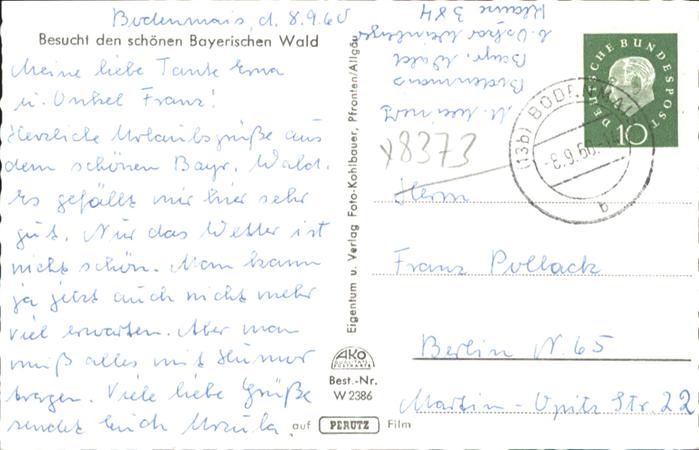 Bodenmais, d. 8.9.60
Besucht den schönen Bayerischen Wald
Meine liebe Tante Erna
u. Onkel Franz!
Herzliche Urlaubsgrüße aus
dem schönen Bayr. Wald.
Es gefällt mir hier sehr
gut. Nur das Wetter ist
nicht schön. Man kann
ja jetzt auch nicht mehr
viel erwarten. Aber man
muß alles mit Humor
tragen. Viele liebe Grüße
sendet Euch Ursula.
auf PERUTZ Film
Eigentum u. Verlag Foto-Kohlbauer, Pfronten/Allgäu
AKO
QUALITÄTS
POSTKARTE
Best.-Nr.
W 2386
Bodenmais
Bayr. Wald
384
8373
DEUTSCHE BUNDESPOST
10
(13b) BODENMAIS
-8.9.60
b
Herrn
Franz Pollack
Berlin N. 65
Martin-Opitz Str. 22